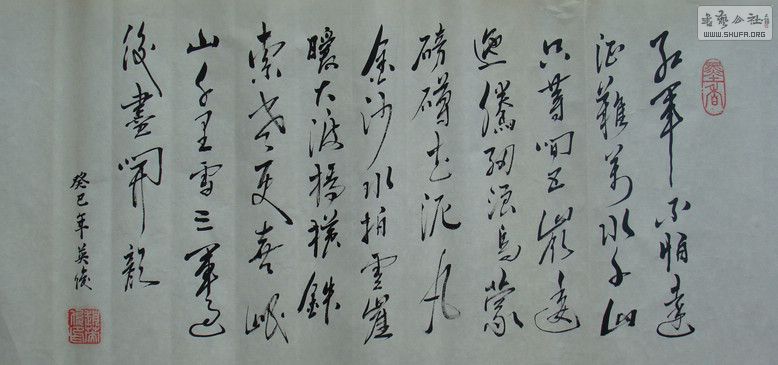 紅軍不怕遠
征難萬水千山
只等閒五嶺逶
迤騰細浪烏蒙
磅礴走泥丸
金沙水拍雲崖
暖大渡橋橫鐵
索寒更喜岷
山千里雪三軍過
後盡開顏
癸巳年英俊
书艺公社
WWW.SHUFA.ORG